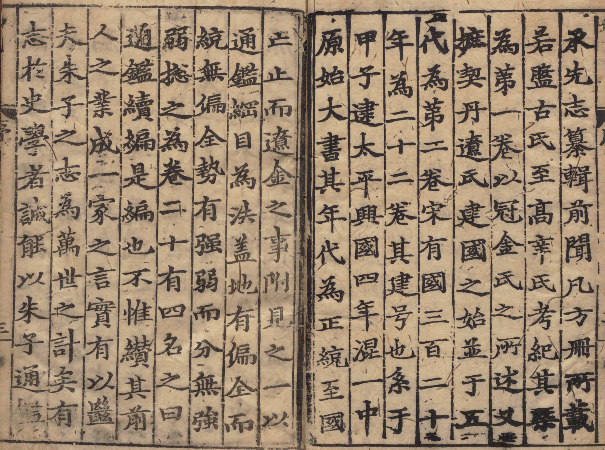 承先志纂輯前聞凡方冊所載
若盤古氏至高辛氏考紀其槩
為第一卷以冠金氏之所述又
摭契丹遼氏建國之始並于五
代為第二卷宋有國三百二十
年為二十二卷其建号也系于
甲子逮太平興國四年混一中
原始大書其年代為正統至國
正止而遼金之事附見之一以
通鑑綱目為法盖地有偏全而
統無偏全勢有强弱而分無強
弱揔之為卷二十有四名之曰
通鑑續編是編也不惟纘其前
人之業成一家之言實有以繼
夫朱子之志為萬世之計矣有
志於史學者誠能以朱子通鑑